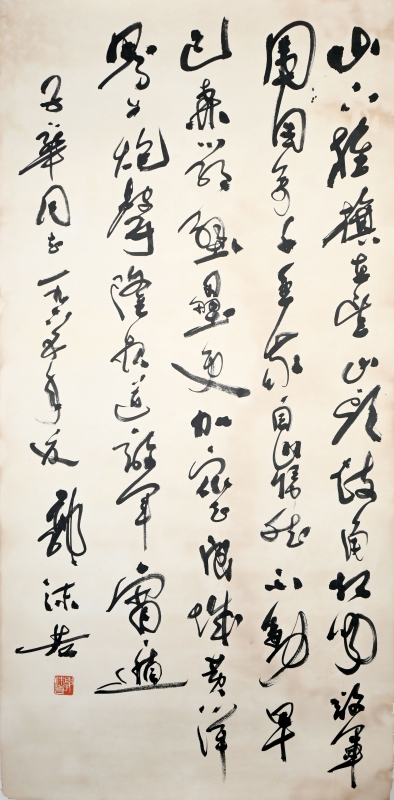 山下旌旗在望山头鼓角相闻敌軍
圍困万千重我自巋然不動早
已森嚴壁壘更加众志成城黄洋
界上炮聲隆报道敌軍宵遁
子華同志 一九六五年夏 郭沫若